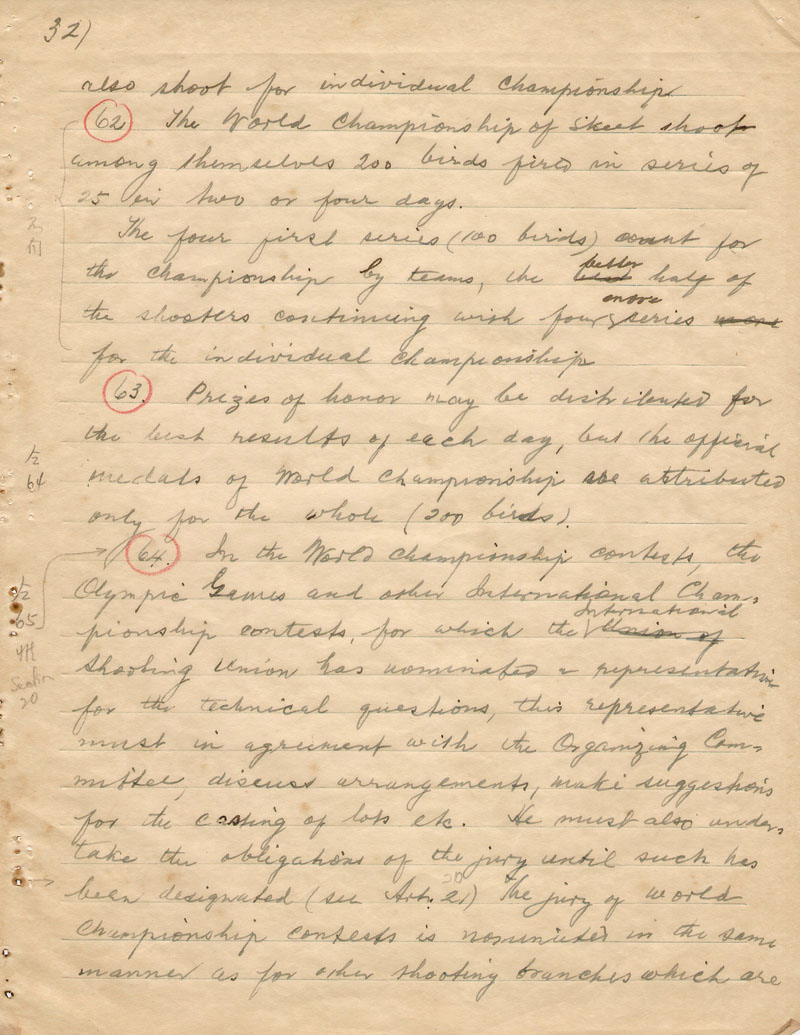 32)
also shoot for individual championship
62 The World Championship of Skeet shoot
among themselves 200 birds fired in series of
25 in two or four days.
The four first series (100 birds) count for
better
the championship by teams, the best half of
more
the shooters continuing with four series more
for the individual championship
63. Prizes of honor may be distributed for
the best results of each day, but the official
1/2
64
medals of World Championship are attributed
only for the whole (200 birds).
64. In the World Championship contests, the
Olympic Games and other International Cham-
1/2
65
International
pionship contests, for which the Union of
4th
Section
20
Shooting Union has nominated a representative
for the technical questions, this representative
must in agreement with the Organizing Com-
mittee, discuss arrangements, make suggestions
for the casting of lots etc. He must also under-
take the obligations of the jury until such has
20
been designated (see Art. 21) The jury of World
Championship contests is nominated in the same
manner as for other shooting branches which are